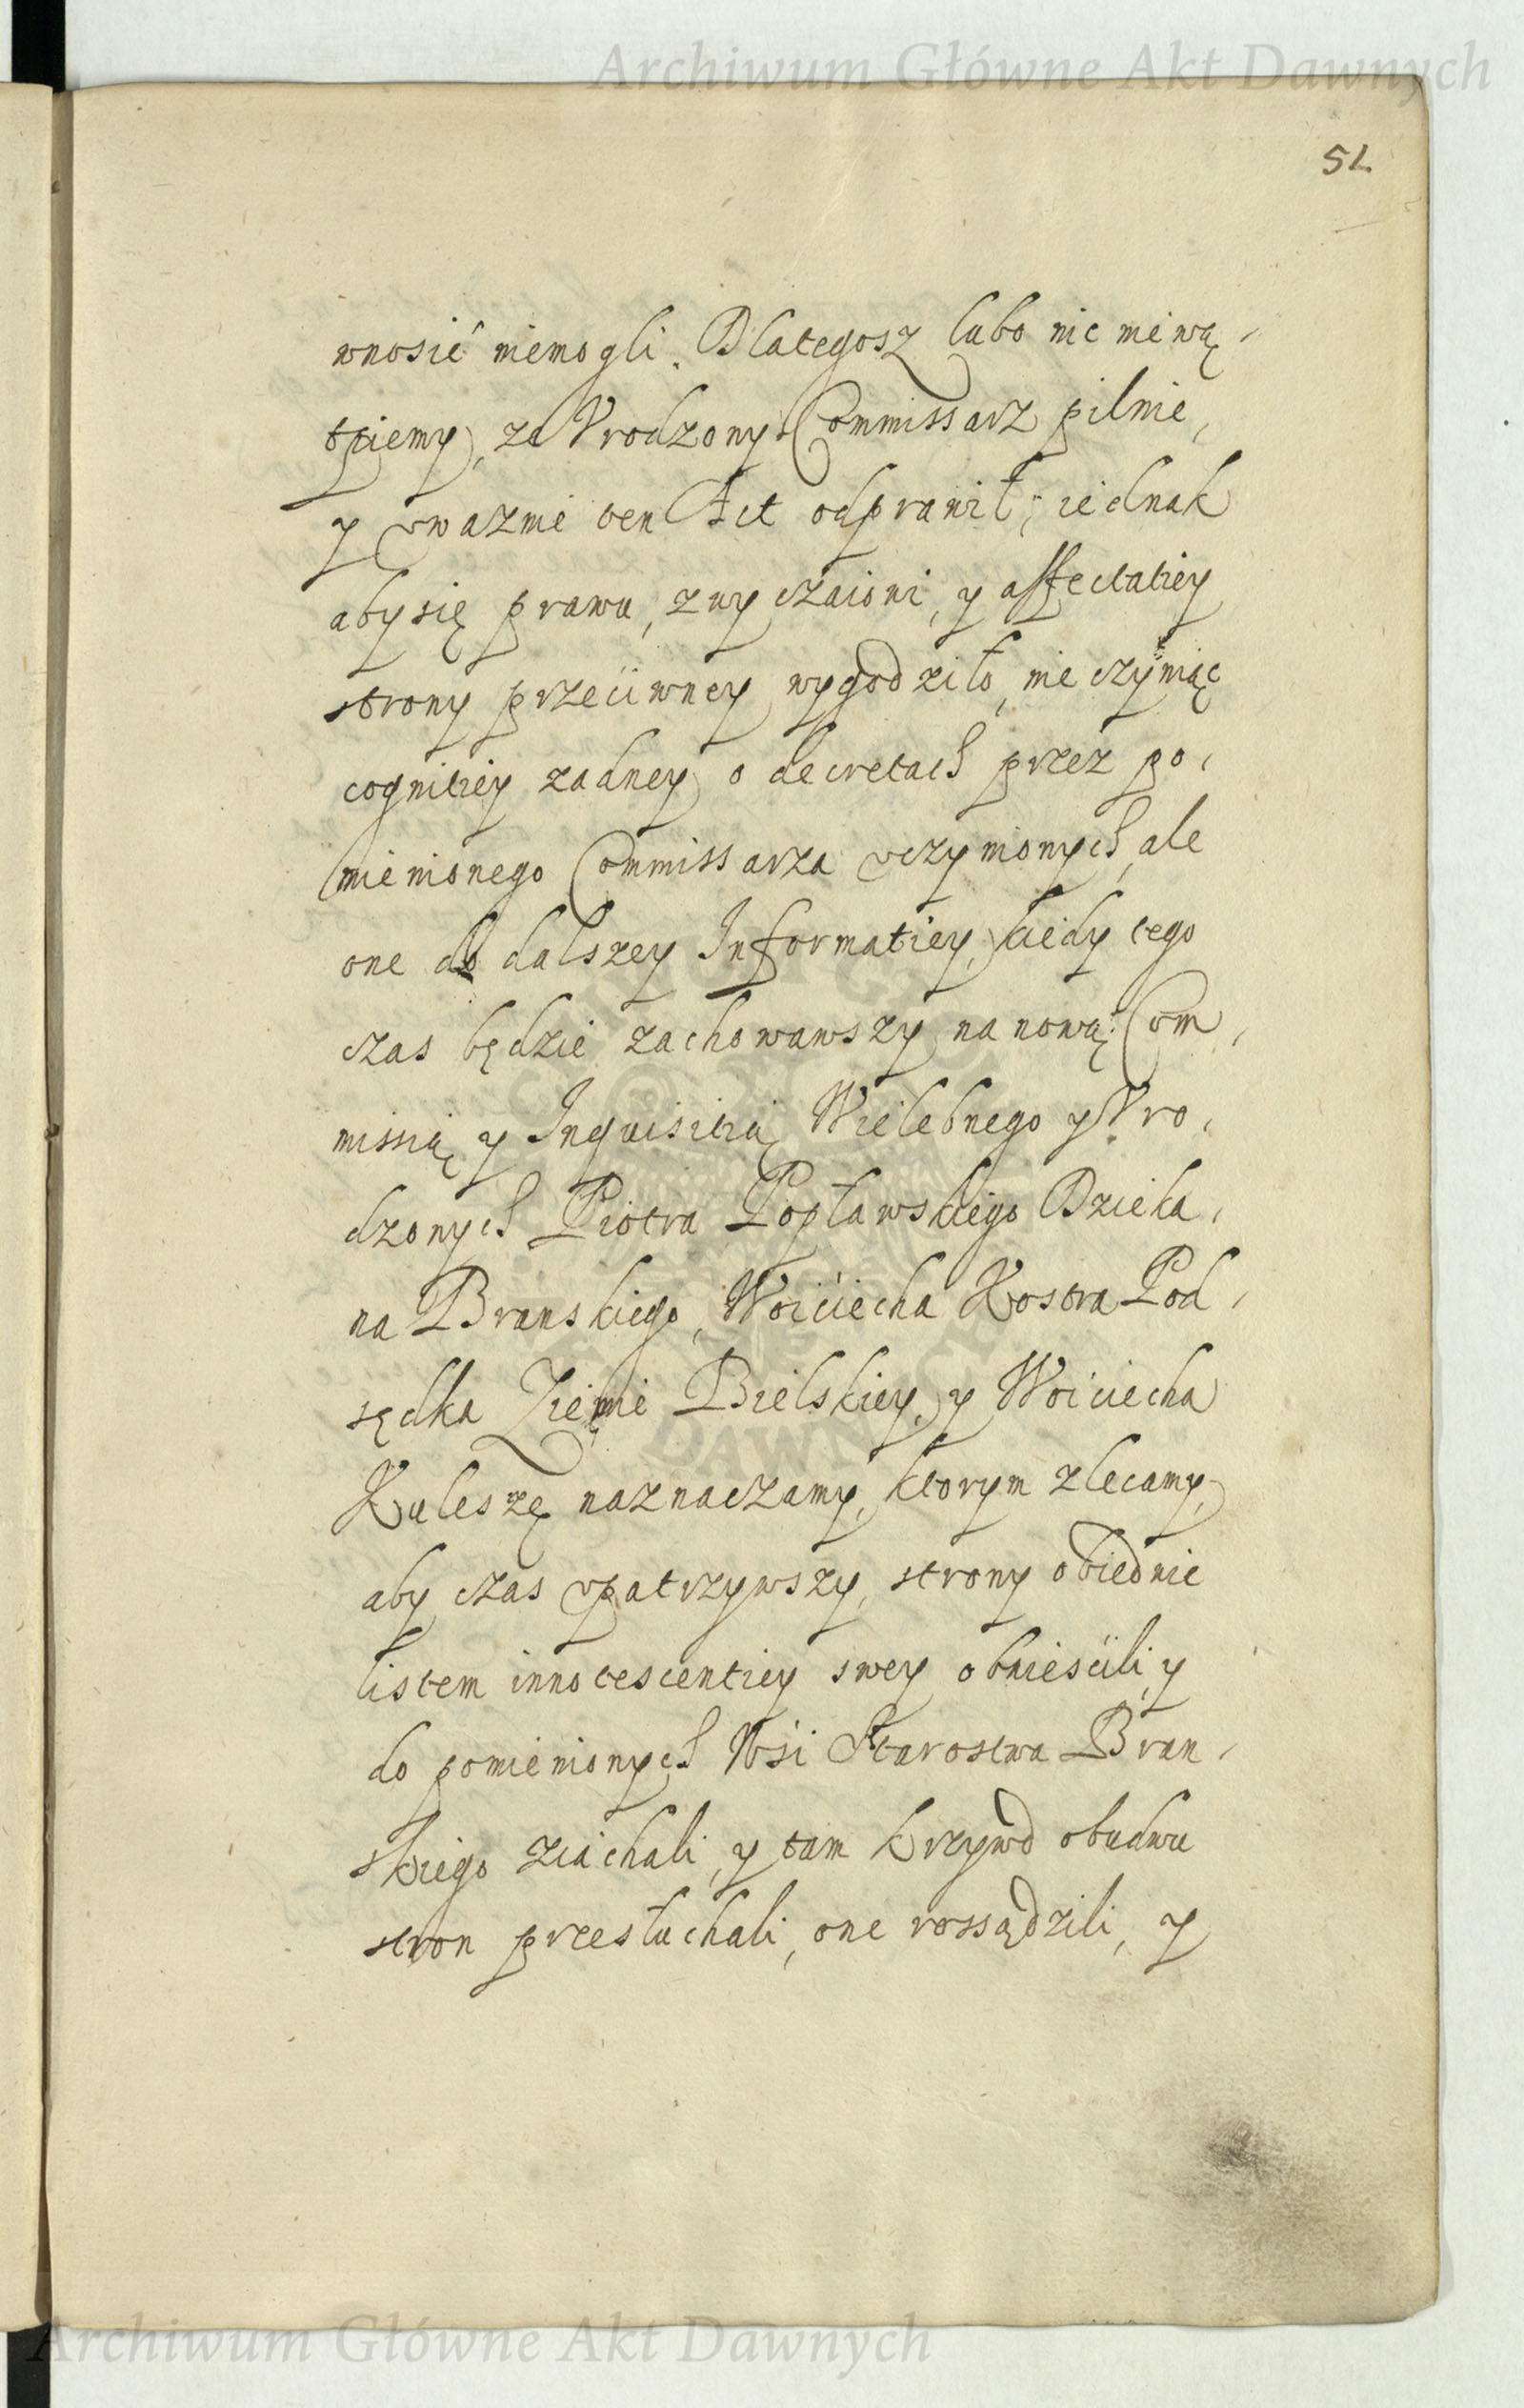 Archiwum Główne Akt Dawnych
51
wnosić niemogli. Dlategosz lubo nic niewą-
tpiemy, ze Vrodzony Commissarz pilnie,
y vwaznie ten Act odprawił, iednak
aby się prawu, zwyczaioni, y affectatiey
strony przeciwney wygodziło, nie czyniąc
cognitiey zadney o decretach przez po,
mienionego Commissarza vczynionych, ale
one do dalszey Informatiey, kiedy tego
czas będzie zachowawszy, na nową Com,
missią y Inquisitią Wielebnego y Vro,
dzonych Piotra Popławskiego Dzieka,
na Branskiego, Woiciecha Kostra Pod,
sędka Ziemie Bielskiey, y Woiciecha
Kuleszę naznaczamy, ktorym zlecamy,
aby czas vpatrzywszy, strony obiednie
listem innotescentiey swey obnieścili, y
do pomienionych Wśi Starostwa Bran,
skiego ziachali, y tam krzywd obudwu
stron przesłuchali, one rossądzili, y
Archiwum Główne Akt Dawnych